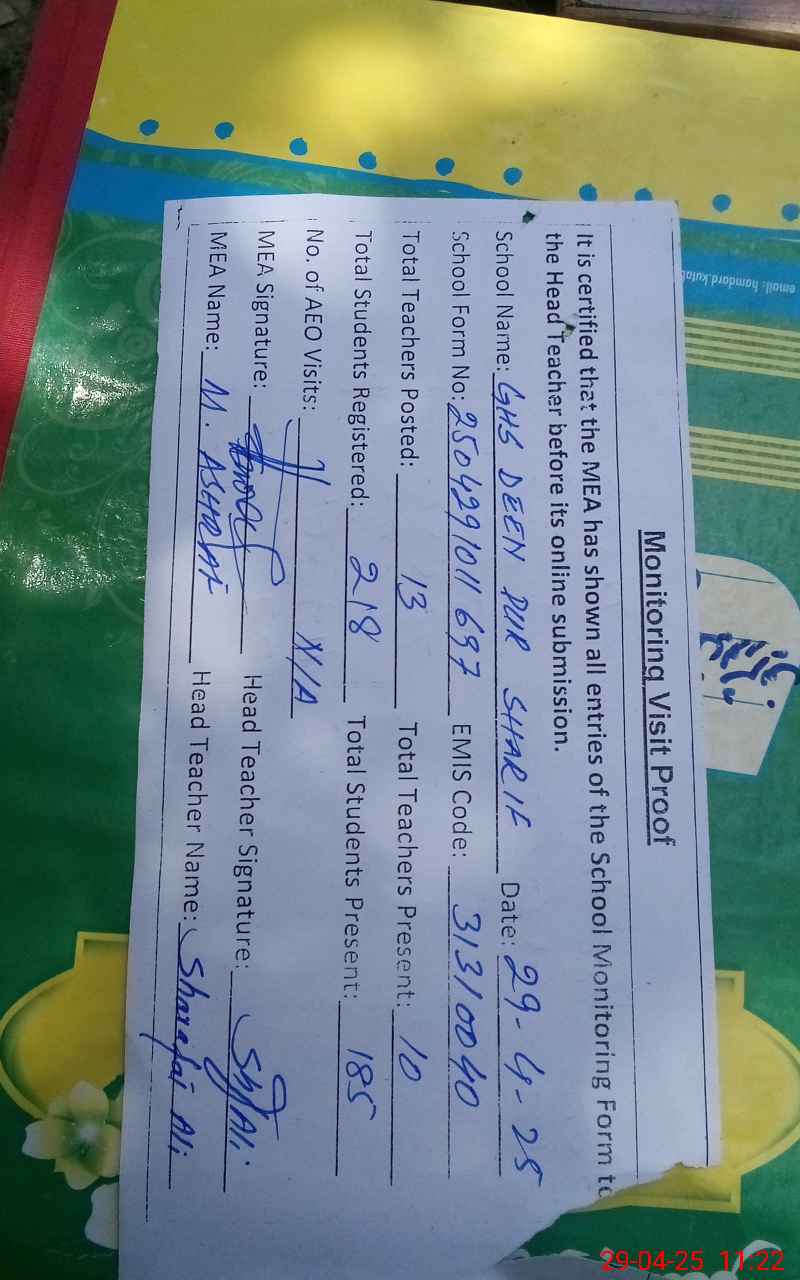 Monitoring Visit Proof
It is certified that the MEA has shown all entries of the School Monitoring Form to
the Head Teacher before its online submission.
School Name: GHS DEEN PUR SHARIF Date: 29-4-25
School Form No: 2504291011697 EMIS Code: 31310040
Total Teachers Posted: 13 Total Teachers Present: 10
Total Students Registered: 218 Total Students Present: 185
No. of AEO Visits: N/A
MEA Signature: Head Teacher Signature: Ali
MEA Name: M. ASHRAF Head Teacher Name: Sharafat Ali
email: hamdard.kutab
29-04-25 11:22